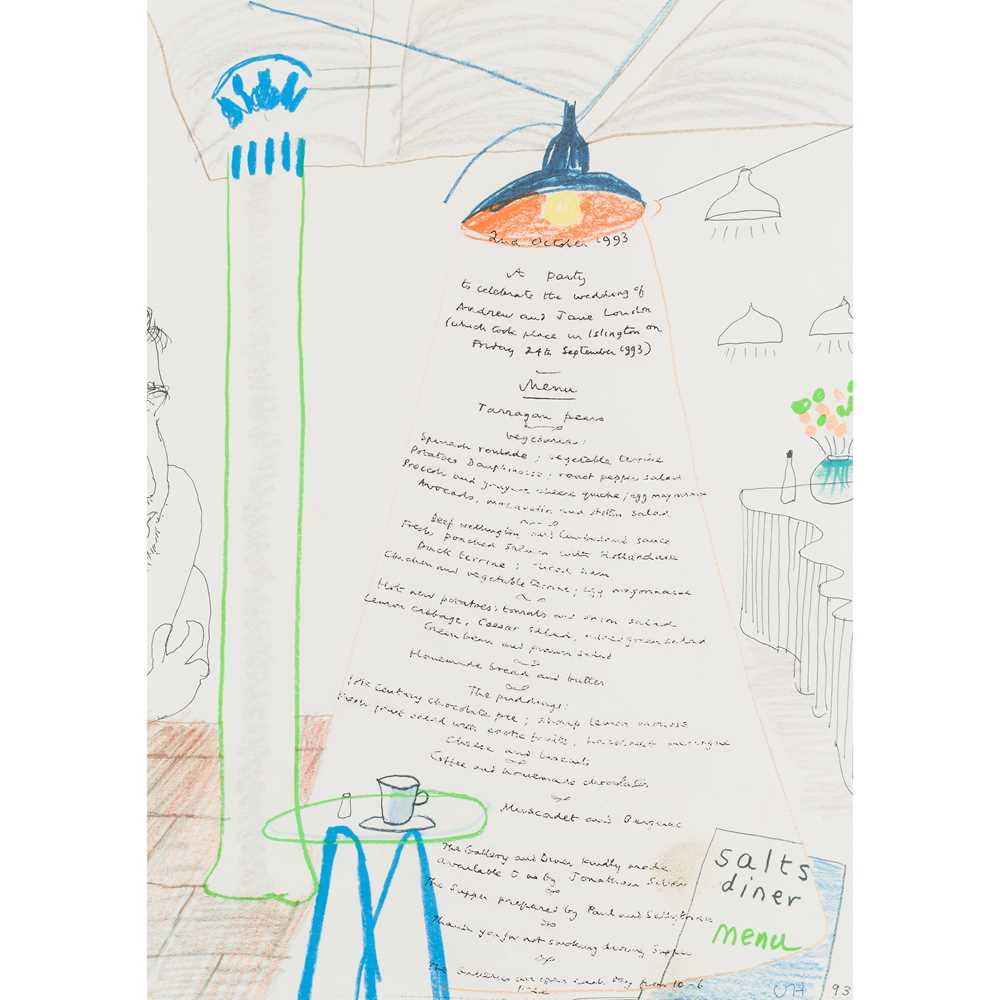 2nd October 1993
A party
to celebrate the wedding of
Andrew and Jane London
(which took place in Islington on
Friday 24th September 1993)
Menu
Tarragan pears
Spinach roulade; vegetable terrine
Potatoes Dauphinoise; roast pepper salad
Broccoli and gruyere cheese quiche; egg mayonnaise
Avocado, and stilton salad
Beef wellington and Cumberland sauce
Fresh poached salmon with Hollandaise
Duck terrine; sliced ham
Chicken and vegetable terrine; egg mayonnaise
Hot new potatoes; tomato and onion salad
Lemon cabbage, Caesar salad, mixed green salad
Green bean and prawn salad
Homemade bread and butter
The puddings:
century chocolate pie; sharp lemon mousse
Fresh fruit salad with exotic fruits, hazelnut meringue
Cheese and biscuits
Coffee and homemade chocolates
Muscadet and Bergerac
The Gallery and Diner kindly made
available to us by Jonathan Silver
The Supper prepared by Paul and
Thank you for not smoking during Supper
The Galleries are open each day from 10-6
salts
diner
menu
DH 93